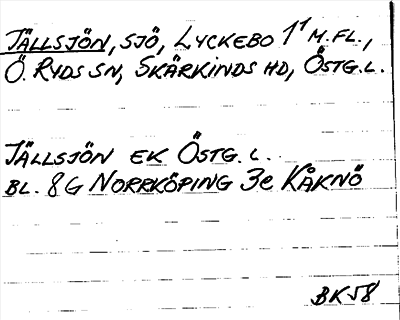 JÄLLSJÖN, SJÖ, LYCKEBO 1¹ M.FL.,
Ö. RYDS SN, SKÄRKINDS HD, ÖSTG.L.
JÄLLSJÖN EK ÖSTG. L.
BL. 8G NORRKÖPING 3e KÅKNÖ
BK58